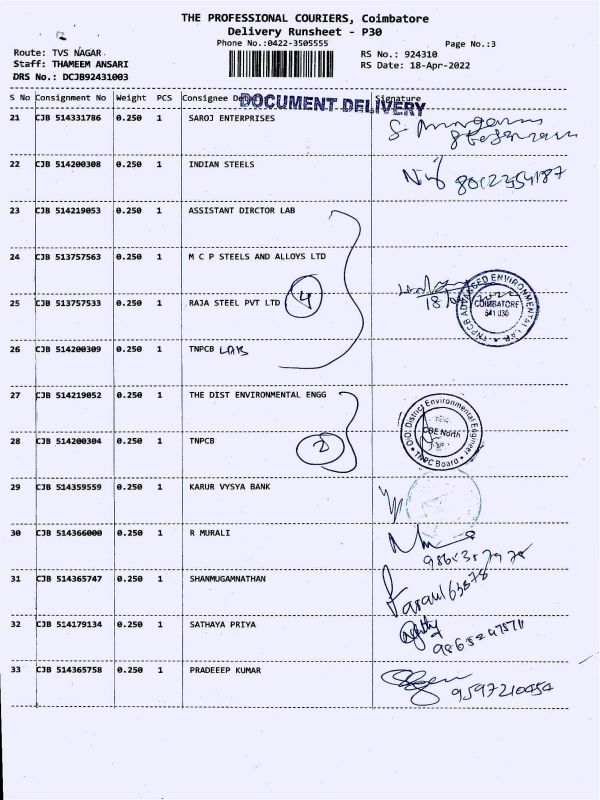 12
THE PROFESSIONAL COURIERS, Coimbatore
Delivery Runsheet - P30
Phone No.:0422-3505555
Page No.:3
Route: TVS NAGAR.
Staff: THAMEEM ANSARI
DRS No.: DCJB92431003
RS No.: 924310
RS Date: 18-Apr-2022
S No Consignment No Weight PCS Consignee Signature
DOCUMENT DELIVERY
21 CJB 514331786 0.250 1 SAROJ ENTERPRISES
22 CJB 514200308 0.250 1 INDIAN STEELS
23 CJB 514219053 0.250 1 ASSISTANT DIRCTOR LAB
24 CJB 513757563 0.250 1 M C P STEELS AND ALLOYS LTD
25 CJB 513757533 0.250 1 RAJA STEEL PVT LTD 4
COIMBATORE
641 030
26 CJB 514200309 0.250 1 TNPCB LABS
27 CJB 514219052 0.250 1 THE DIST ENVIRONMENTAL ENGG
O/O. District Environmental Engineer
CBE North
TNPC Board
28 CJB 514200304 0.250 1 TNPCB 2
29 CJB 514359559 0.250 1 KARUR VYSYA BANK
30 CJB 514366000 0.250 1 R MURALI
31 CJB 514365747 0.250 1 SHANMUGAMNATHAN
32 CJB 514179134 0.250 1 SATHAYA PRIYA
33 CJB 514365758 0.250 1 PRADEEEP KUMAR
9597210454